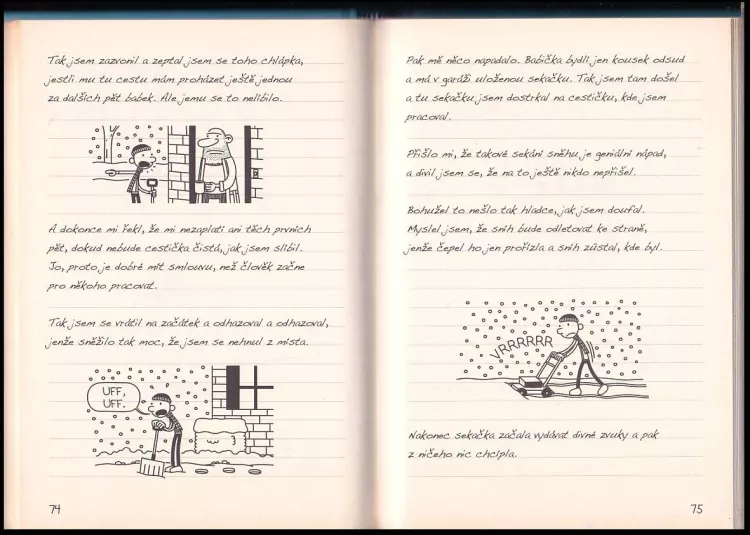 Tak jsem zazvonil a zeptal jsem se toho chlápka,
jestli mu tu cestu mám proházet ještě jednou
za dalších pět babek. Ale jemu se to nelíbilo.
A dokonce mi řekl, že mi nezaplatí ani těch prvních
pět, dokud nebude cestička čistá, jak jsem slíbil.
Jo, proto je dobré mít smlouvu, než člověk začne
pro někoho pracovat.
Tak jsem se vrátil na začátek a odhazoval a odhazoval,
jenže sněžilo tak moc, že jsem se nehnul z místa.
UFF,
UFF.
74
Pak mě něco napadalo. Babička bydlí jen kousek odsud
a má v garáži uloženou sekačku. Tak jsem tam došel
a tu sekačku jsem dostrkal na cestičku, kde jsem
pracoval.
Přišlo mi, že takové sekání sněhu je geniální nápad,
a divil jsem se, že na to ještě nikdo nepřišel.
Bohužel to nešlo tak hladce, jak jsem doufal.
Myslel jsem, že sníh bude odletovat ke straně,
jenže čepel ho jen prořízla a sníh zůstal, kde byl.
VRRRRRR
Nakonec sekačka začala vydávat divné zvuky a pak
z ničeho nic chcípla.
75